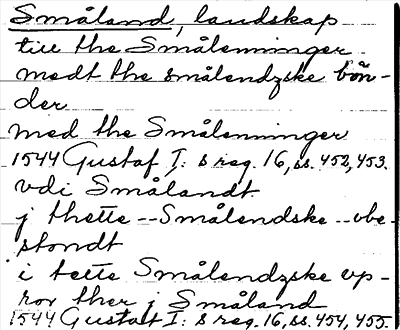 Småland, landskap
till the Smålenninger
medt the smålendzske bön-
der
med the Smålenninger
1544 Gustaf I:s reg. 16, ss. 452, 453.
vdi Smålandt
j thette -- Smålendske -- vbe-
stondt
i tette Smålendzske vp-
ror ther j Småland
1544 Gustaf I:s reg. 16, ss. 454, 455.